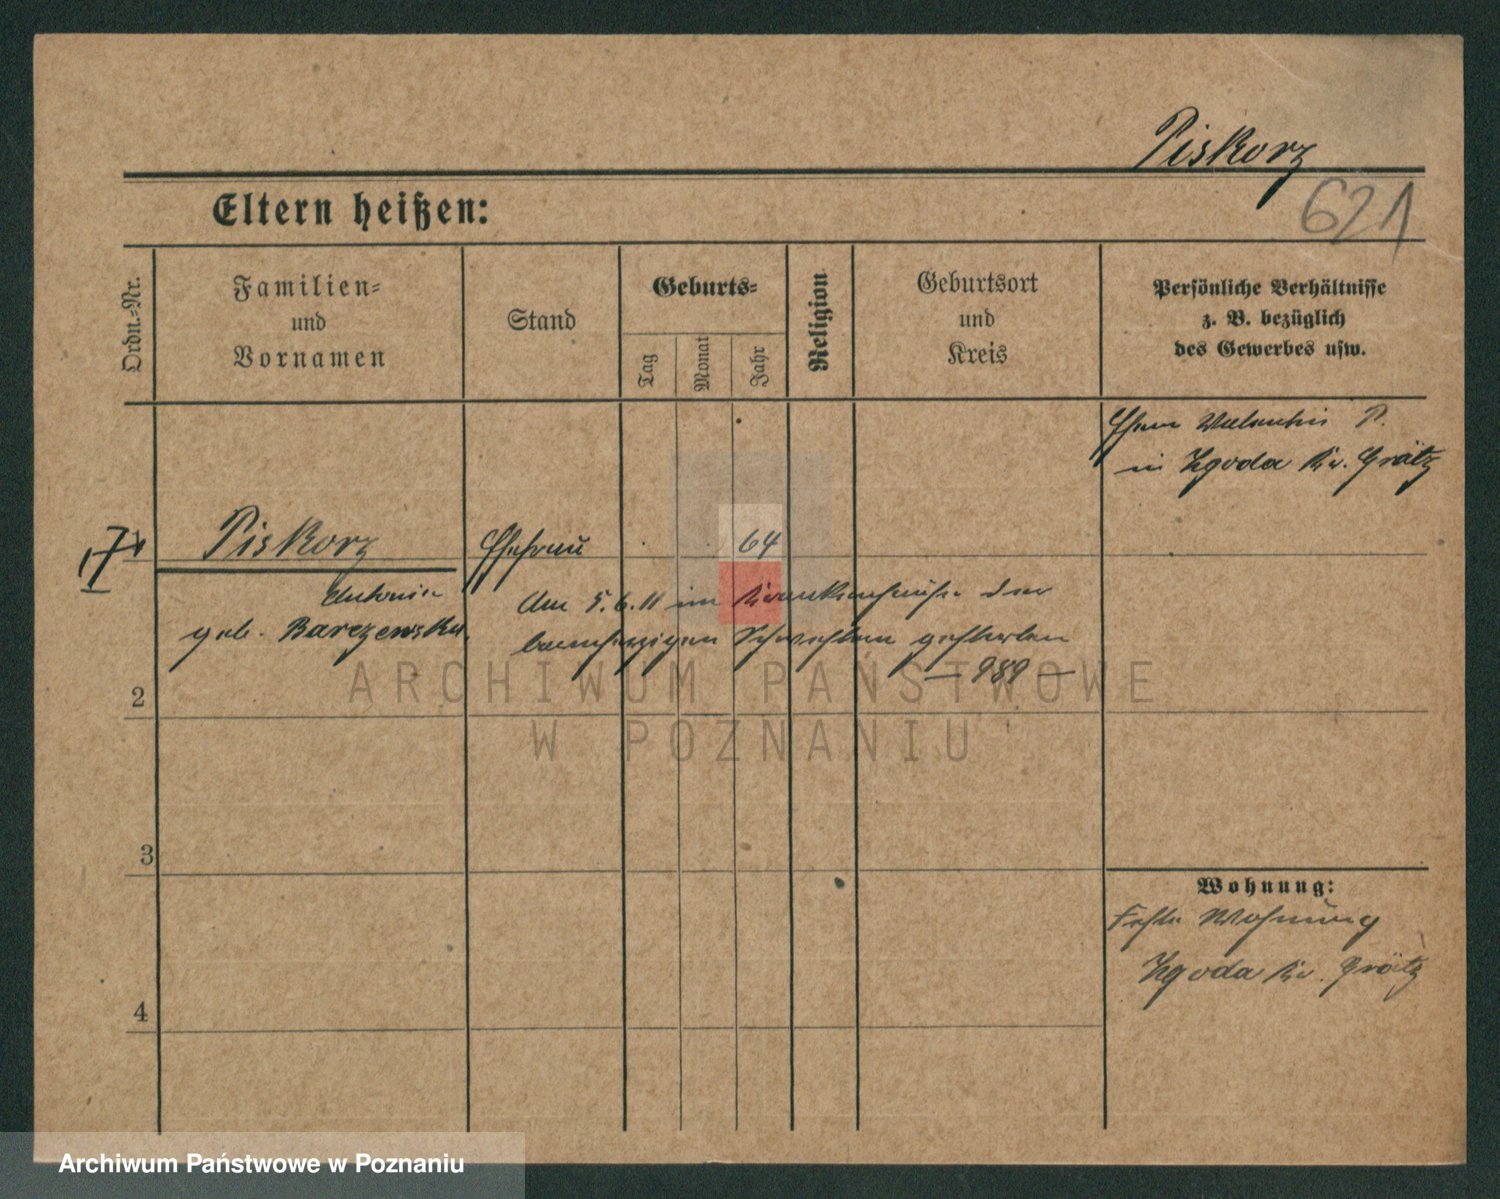 Piskorz
621
Eltern heißen:
Ordn.-Nr.
Familien-
und
Vornamen
Stand
Geburts-
Tag
Monat
Jahr
Religion
Geburtsort
und
Kreis
Persönliche Verhältnisse
z. B. bezüglich
des Gewerbes usw.
Ehem Valentin P.
in Zgoda Kr. Grätz
1
Piskorz
Ehefrau
64
Antonie
geb. Barczewska
Am 5.6.11 im Krankenhause der
barmherzigen Schwestern gestorben
— 989 —
2
3
4
Wohnung:
Feste Wohnung
Zgoda Kr. Grätz
ARCHIWUM PAŃSTWOWE
W POZNANIU
Archiwum Państwowe w Poznaniu